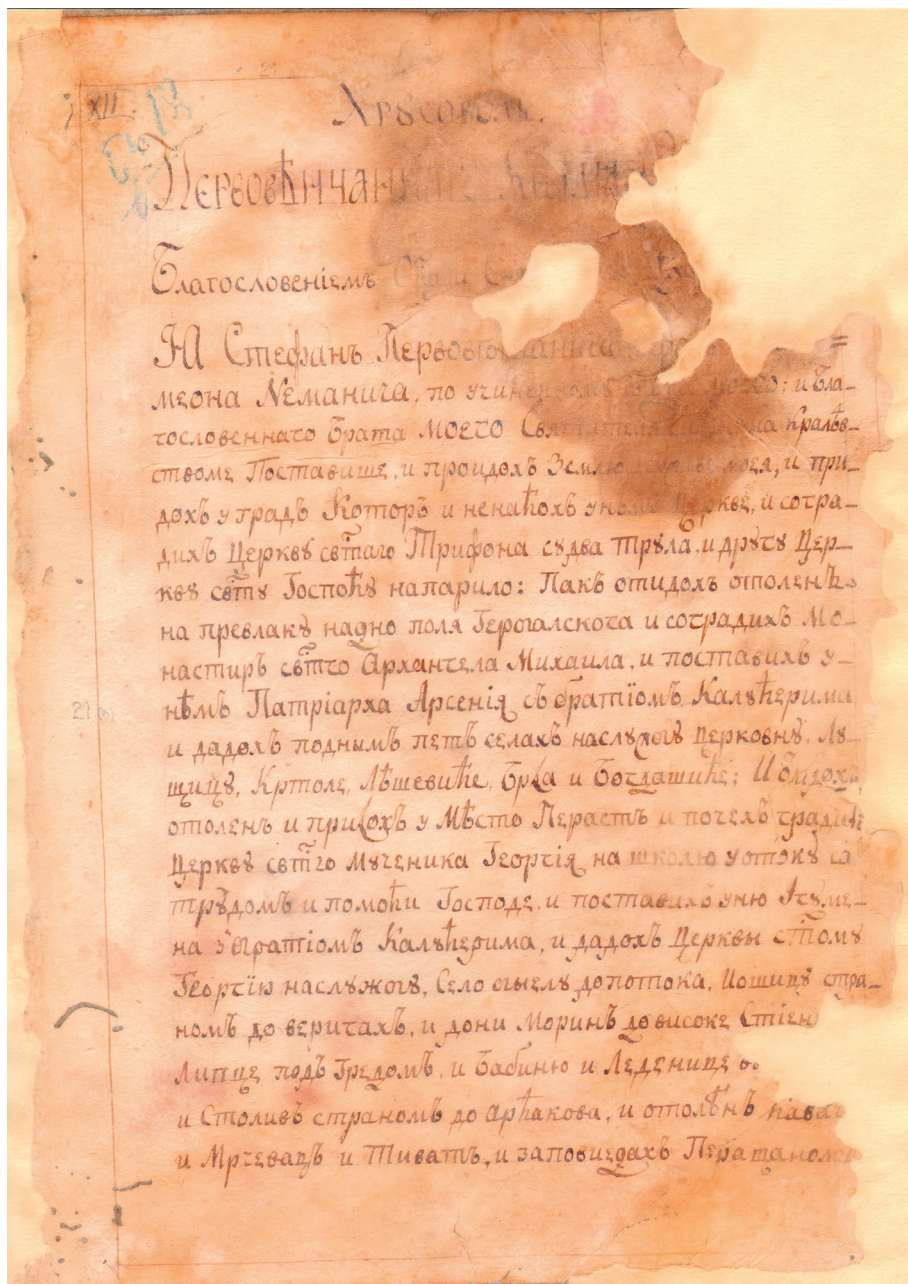 XII.
Хрȣсоволъ.
Первовѣнчан
Благословеніемъ
Ѩ Стефанъ Первовѣ
меона Неманича, по учине моего: и бла-
гословеннаго брата моего Святителя на Кралѣв-
ством Поставише, и проидохъ Землю моея, и при-
дохъ у градъ Которъ и ненаћохъ уньмъ Церкве, и согра-
дихъ Церквȣ свт҃аго Трифона судва трȣла, и другȣ Цер-
квȣ свт҃ȣ Госпоћȣ напарило: Пакъ отидохъ отоленъ
на превлакȣ надно поля Герогалскога и соградихъ Мо-
настиръ свт҃го Архангела Михаила, и поставихъ у-
нѣмъ Патріарха Арсенія съ братїомъ Калȣћерима
и дадохъ поднымъ петъ селахъ наслȣжогȣ церковну, Лу-
щицȣ, Кртоле, Лѣшевиће, Брда и Богдашиће: И
отоленъ и придохъ у Мѣсто Перастъ и почехъ градити
Церквȣ свт҃го Мученика Георгія на школю уотокȣ са
трȣдомъ и помоћи Господе, и поставихъ уню Игуме-
на збратіомъ Калȣћерима, и дадохъ Церкви ст҃омȣ
Георгїю наслужогȣ, Село огыелу допотока, Иошицȣ стра-
номъ до веригахъ, и дони Моринъ до високе Стіен
Липце подъ Гредомъ, и Бабиню и Леденице
и Столивъ страномъ до арћакова, и отолѣнъ Кава
и Мрчевацъ и Тиватъ, и заповиедахъ Пераштаном